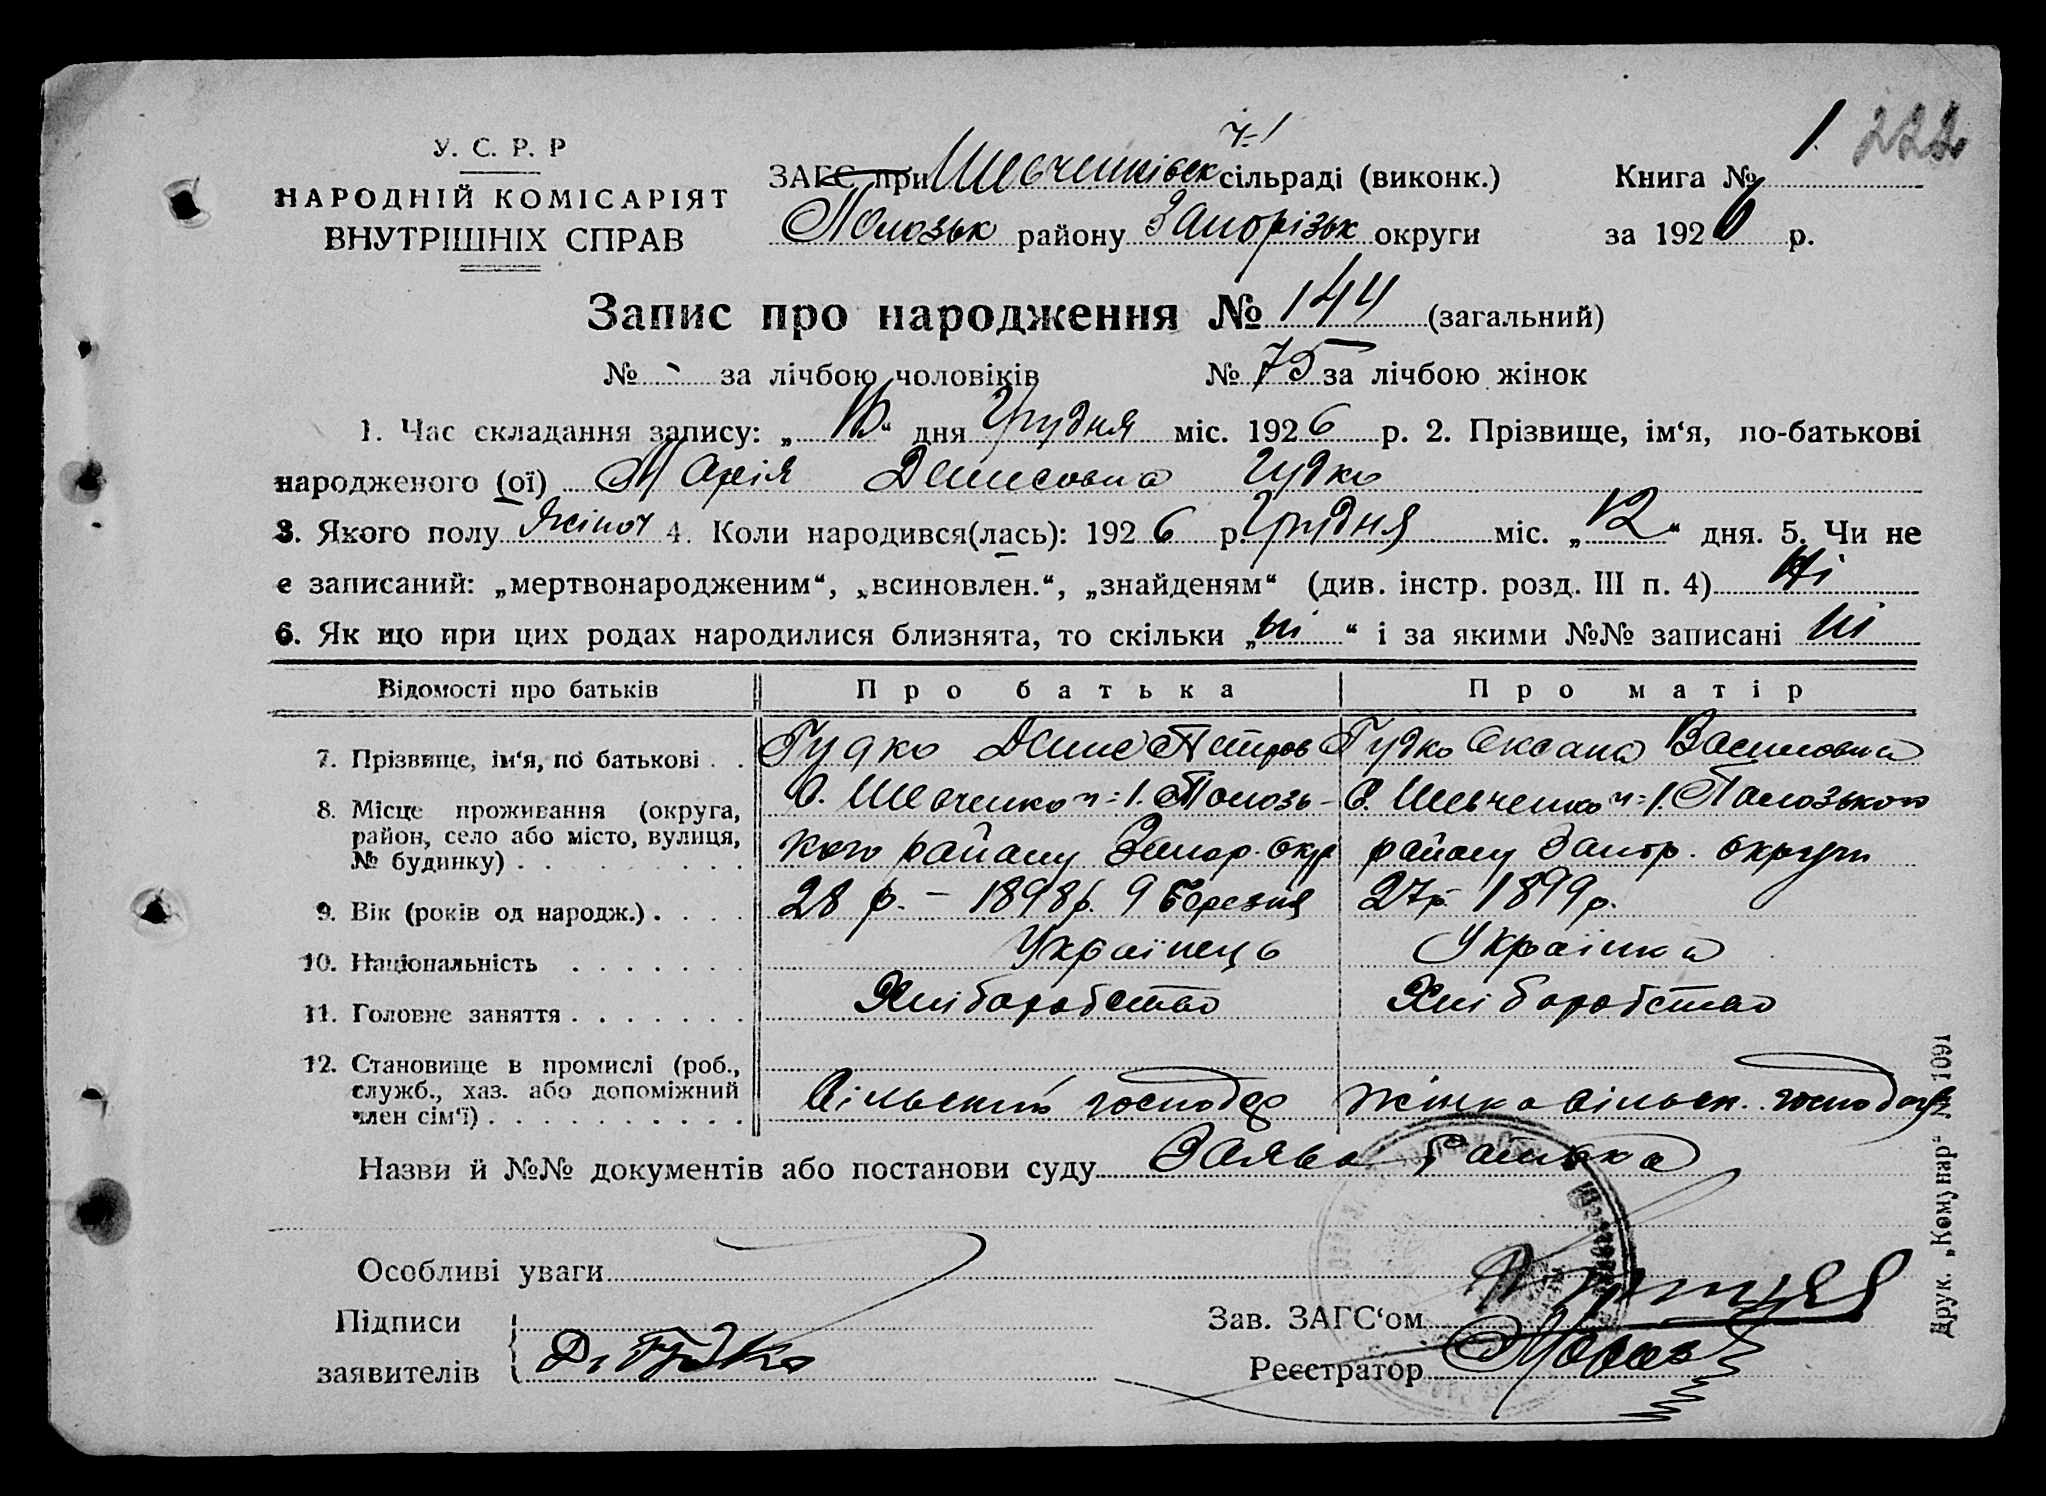 ч-1
1. 222
У. С. Р. Р
НАРОДНІЙ КОМІСАРІЯТ
ВНУТРІШНІХ СПРАВ
ЗАГС при Шевченківск сільраді (виконк.)
Полозьк району Запорізьк округи
Книга №
за 1926 р.
Запис про народження № 144 (загальний)
№ - за лічбою чоловіків № 75 за лічбою жінок
1. Час складання запису: „ “ дня Грудня міс. 1926 р. 2. Прізвище, ім‘я, по-батькові
народженого (ої) Марія Денисовна Гудко
3. Якого полу жіноч 4. Коли народився(лась): 1926 р. Грудня міс. „12“ дня. 5. Чи не
є записаний: „мертвонародженим“, „всиновлен.“, „знайденям“ (див. інстр. розд. III п. 4) Ні
6. Як що при цих родах народилися близнята, то скільки „ні“ і за якими №№ записані ні
Відомості про батьків Про батька Про матір
7. Прізвище, ім‘я, по батькові . . Гудко Денис Петров Гудко Оксана Василовна
8. Місце проживання (округа, район, село або місто, вулиця, № будинку) . . .
С. Шевченко ч=1. Полозь-
кого району Запор. окр
С. Шевченко ч=1. Полозького
району Запор. округи
9. Вік (років од народж.) . . . . 28 р. – 1898р. 9 березня 27р. 1899р.
10. Національність . . . . . . . Українець Українка
11. Головне заняття . . . . . . . Хліборобство Хліборобство
12. Становище в промислі (роб., служб., хаз. або допоміжний член сім‘ї) . . .
Сільський господар Жінка сільск. господаря
Назви й №№ документів або постанови суду Заява батька
Особливі уваги
Підписи
заявителів Д. Гудко
Зав. ЗАГС‘ом
Реєстратор
Друк. „Комунар“ № 1091